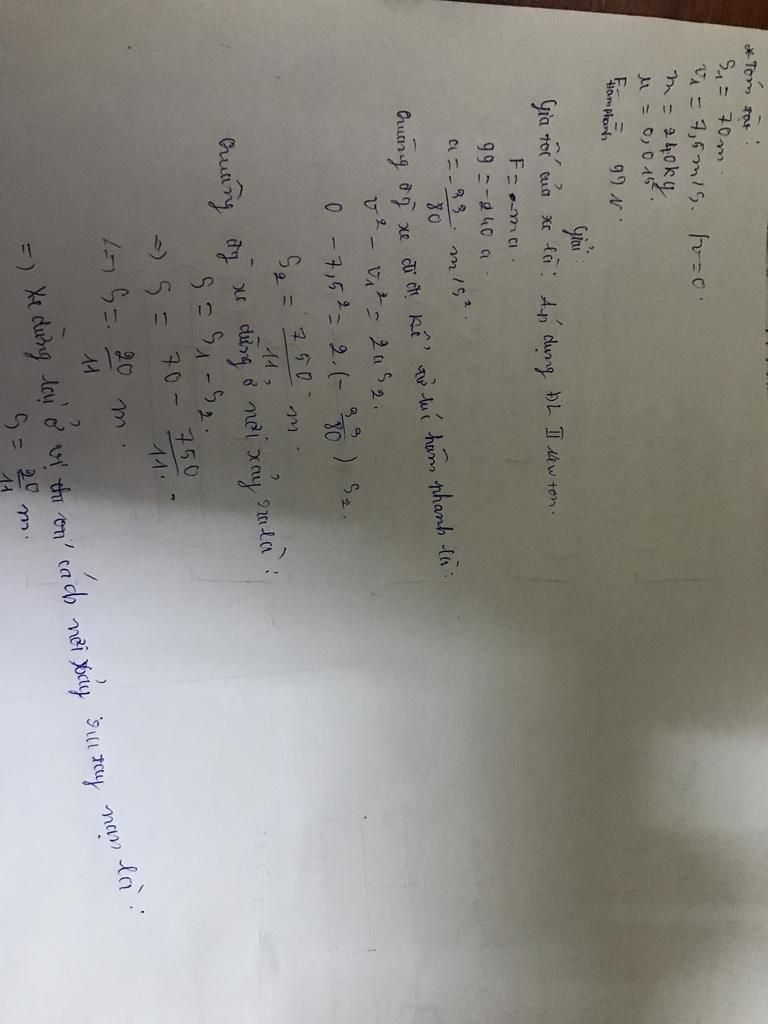 * Tóm tắt:
S₁ = 70m.
v₁ = 7,5m/s. v=0.
m = 240kg
μ = 0,015.
F hãm phanh = 99 N.
Giải:
Gia tốc của xe là: Áp dụng ĐL II Newton.
F = -ma.
99 = -240a.
a = -33/80 m/s².
Quãng đg xe đi đc kể từ lúc hãm phanh là:
v² - v₁² = 2aS₂.
0 - 7,5² = 2.(-33/80) S₂.
S₂ = 750/11 m.
Quãng đg xe dừng ở nơi xảy ra là:
S = S₁ - S₂.
=> S = 70 - 750/11.
<=> S = 20/11 m.
=> Xe dừng lại ở vị trí cách nơi xảy nạn là:
S = 20/11 m.